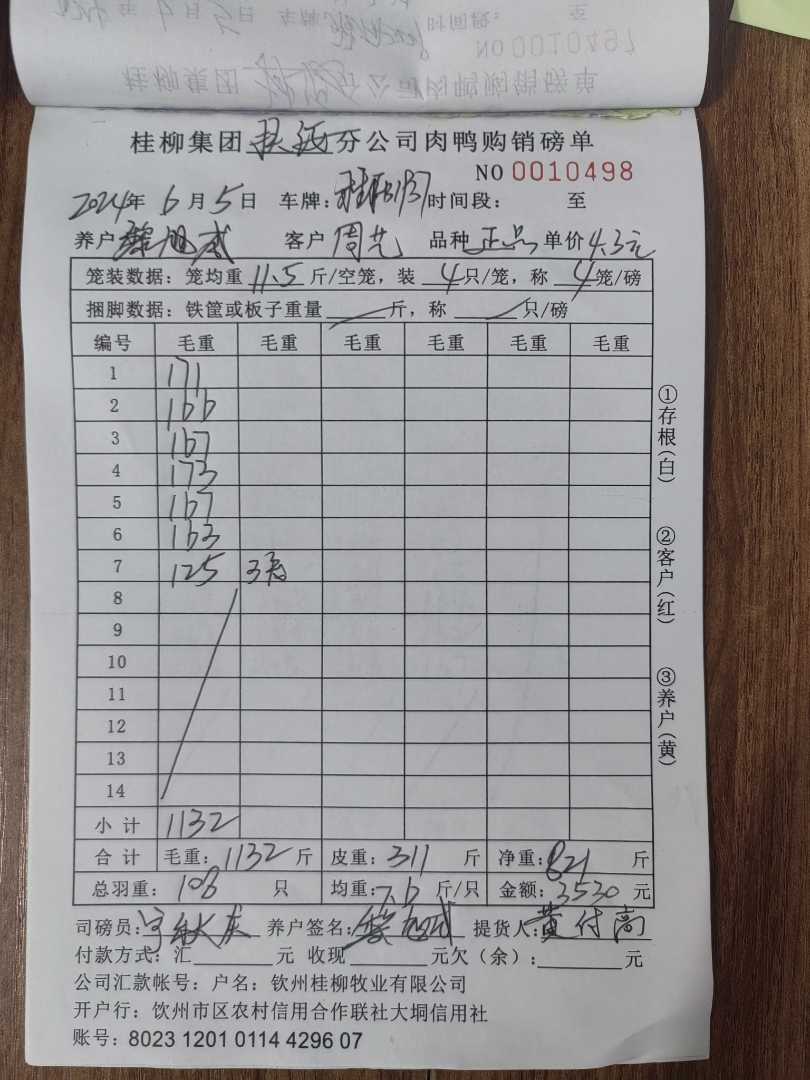 NO 0010497
桂柳集团 分公司肉鸭购销磅单
桂柳集团 分公司肉鸭购销磅单
NO 0010498
2024年 6月5日 车牌: 时间段: 至
养户 客户 周 品种 正品 单价 4.3元
笼装数据: 笼均重 11.5 斤/空笼, 装 4 只/笼, 称 4 笼/磅
捆脚数据: 铁筐或板子重量 斤, 称 只/磅
编号 毛重 毛重 毛重 毛重 毛重 毛重
1 171
2 166
3 167
4 173
5 167
6 163
7 125 3
8
9
10
11
12
13
14
小计 1132
合计 毛重: 1132 斤 皮重: 311 斤 净重: 821 斤
总羽重: 108 只 均重: 7.6 斤/只 金额: 3530 元
司磅员: 养户签名: 提货人: 黄付高
付款方式: 汇 元 收现 元欠(余): 元
公司汇款帐号: 户名: 钦州桂柳牧业有限公司
开户行: 饮州市区农村信用合作联社大垌信用社
账号: 8023 1201 0114 4296 07
①存根(白)
②客户(红)
③养户(黄)